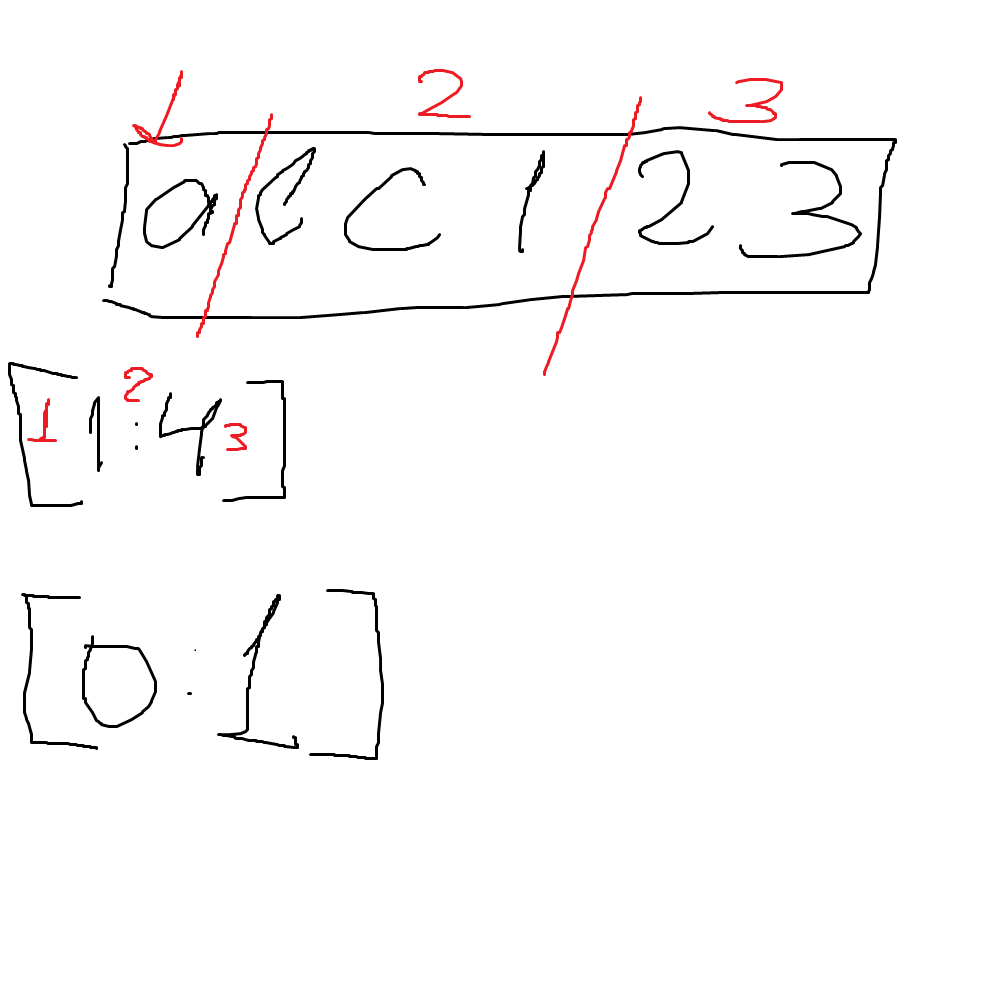 1 2 3
abc123
2
[1 1:4 3]
[0:1]